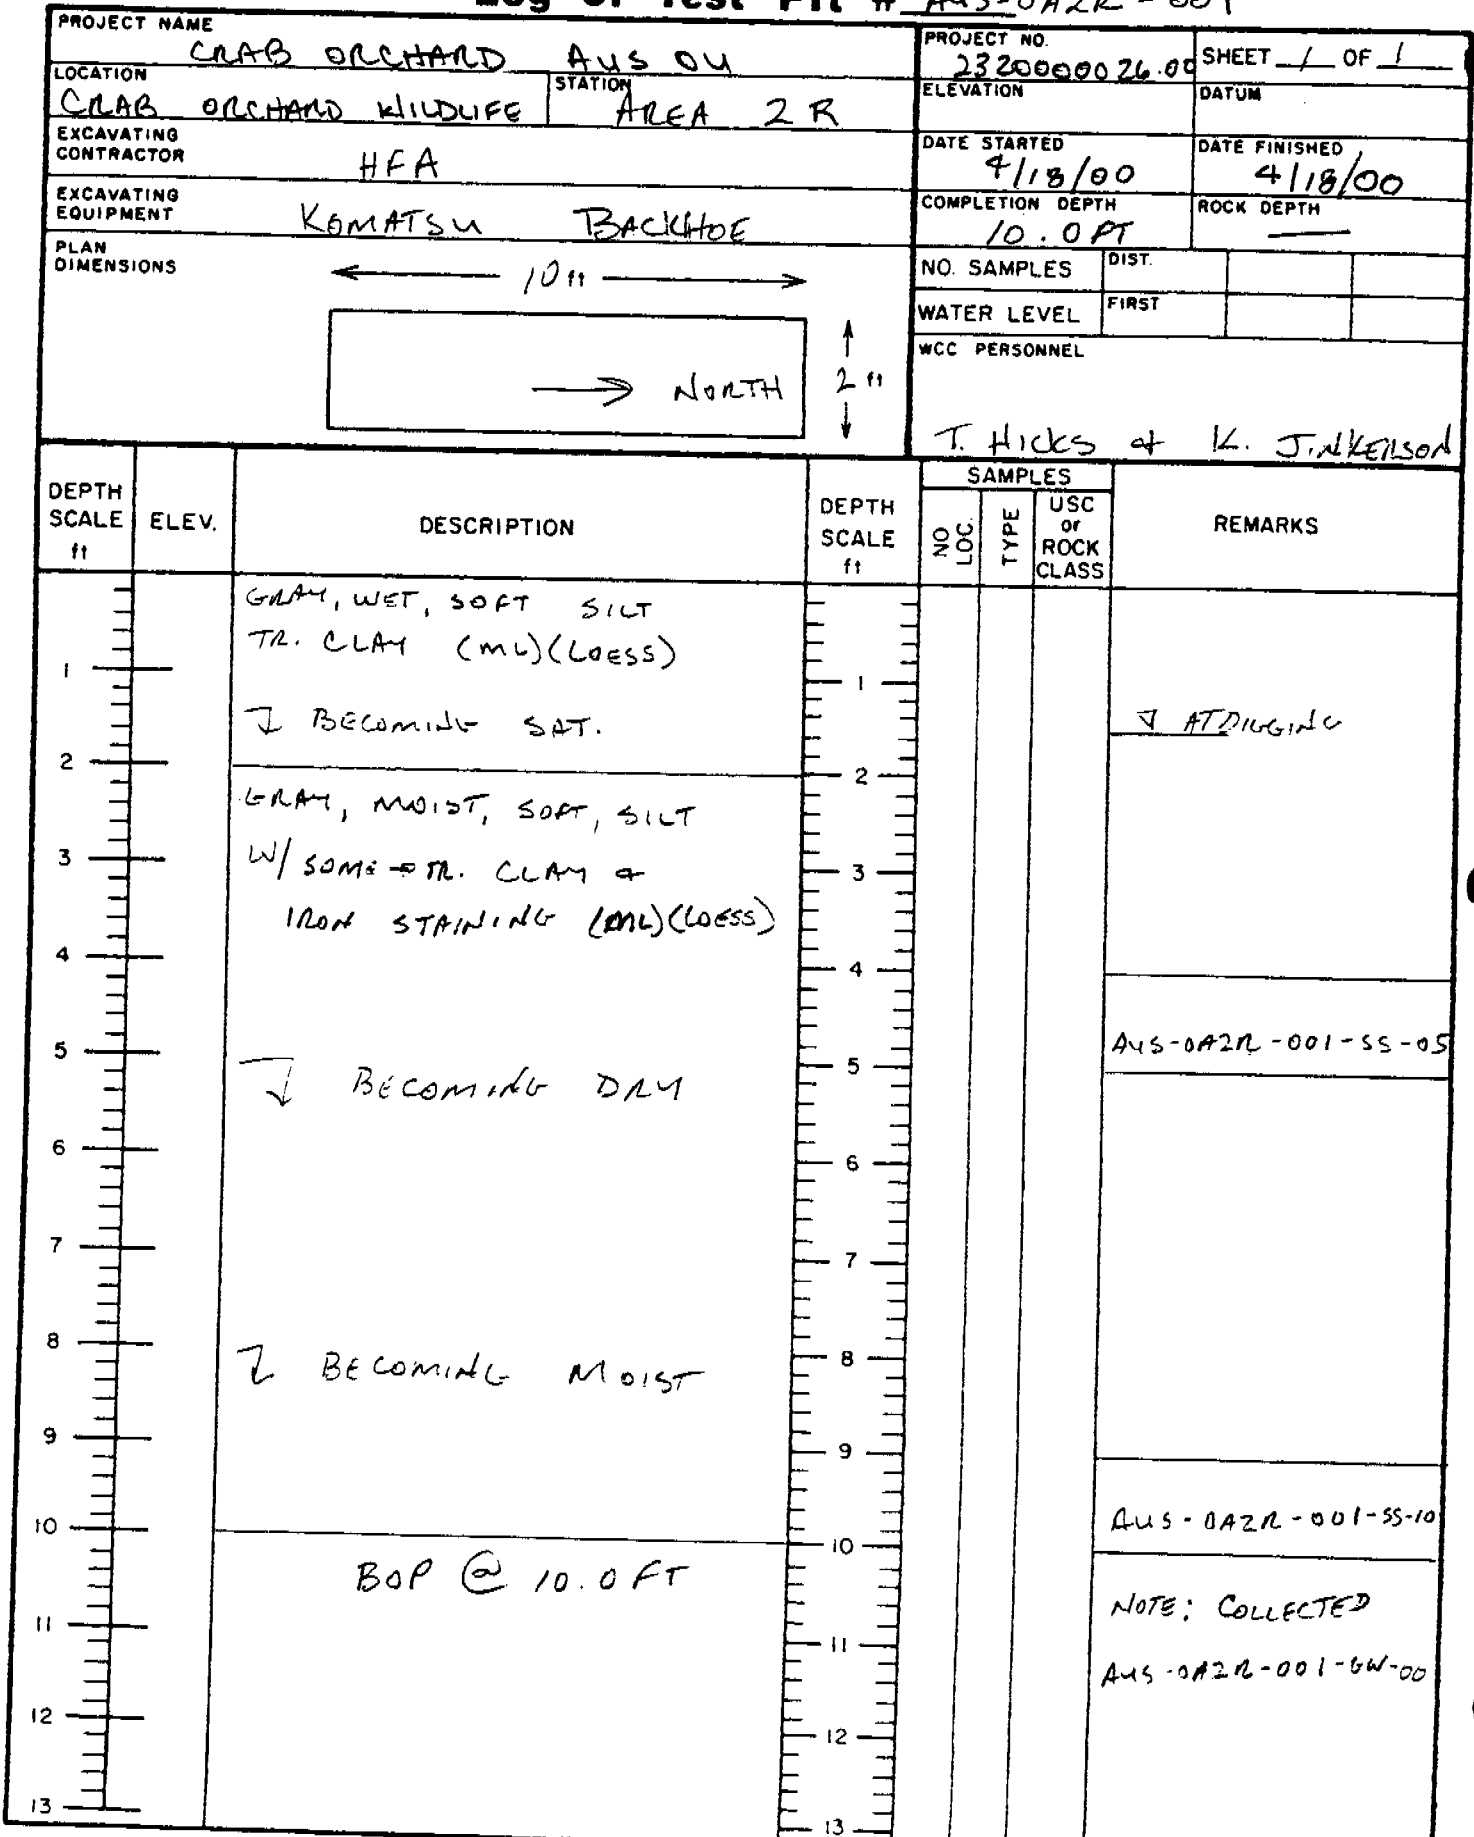 Log of Test Pit # AUS-0A2R-001
PROJECT NAME
CRAB ORCHARD AUS OU
PROJECT NO.
2320000026.00
SHEET 1 OF 1
LOCATION
CRAB ORCHARD WILDLIFE
STATION
AREA 2R
ELEVATION
DATUM
EXCAVATING
CONTRACTOR
HFA
DATE STARTED
4/18/00
DATE FINISHED
4/18/00
EXCAVATING
EQUIPMENT
KOMATSU BACKHOE
COMPLETION DEPTH
10.0 FT
ROCK DEPTH
—
PLAN
DIMENSIONS
10 ft
→ NORTH
2 ft
NO. SAMPLES
DIST.
WATER LEVEL
FIRST
WCC PERSONNEL
T. HICKS & K. JINKERSON
DEPTH
SCALE
ft
ELEV.
DESCRIPTION
DEPTH
SCALE
ft
SAMPLES
NO
LOC.
TYPE
USC
or
ROCK
CLASS
REMARKS
GRAY, WET, SOFT SILT
TR. CLAY (ML)(LOESS)
1
1
BECOMING SAT.
AT DIGGING
2
2
GRAY, MOIST, SOFT, SILT
3
W/ SOME - TR. CLAY &
3
IRON STAINING (ML)(LOESS)
4
4
AUS-0A2R-001-SS-05
5
5
BECOMING DRY
6
6
7
7
8
8
BECOMING MOIST
9
9
AUS-0A2R-001-SS-10
10
10
BOP @ 10.0 FT
NOTE: COLLECTED
11
11
AUS-0A2R-001-GW-00
12
12
13
13